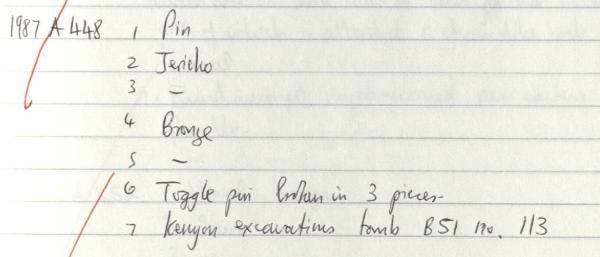 1987 A 448 1 Pin
2 Jericho
3 –
4 Bronze
5 –
6 Toggle pin broken in 3 pieces.
7 Kenyon excavations tomb B51 no. 113